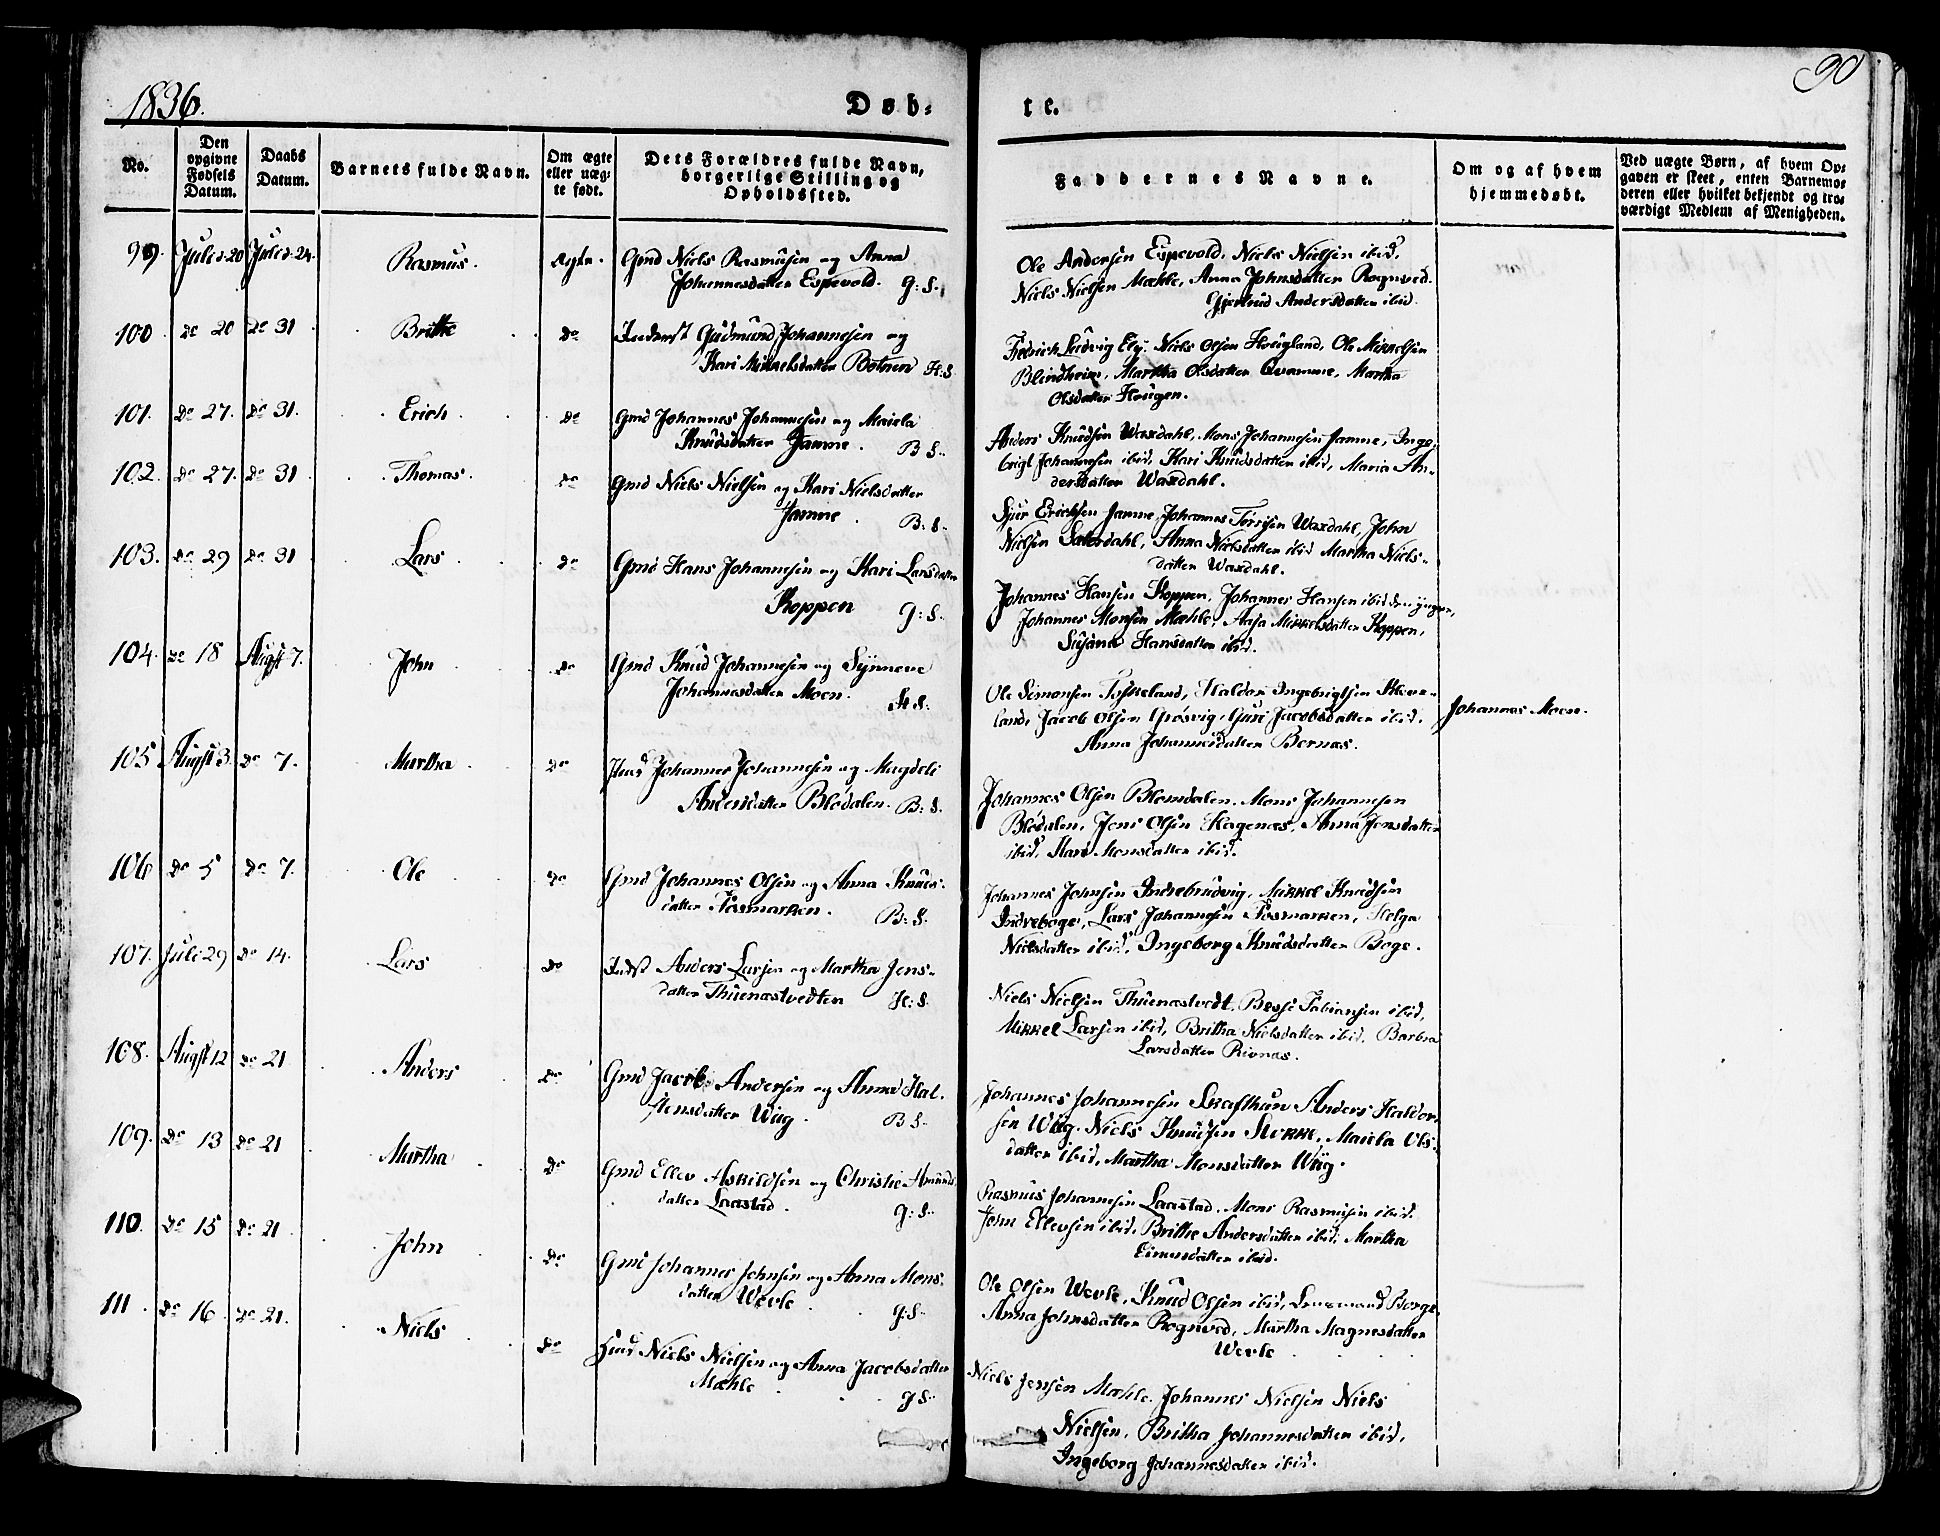 1836.
Døb-
te.
90
No.
Den opgivne Fødsels Datum.
Daabs Datum.
Barnets fulde Navn.
Om ægte eller uægte født.
Dets Forældres fulde Navn, borgerlige Stilling og Opholdssted.
Faddernes Navne.
Om og af hvem hjemmedøbt.
Ved uægte Børn, af hvem Opgaven er skeet, enten Barnemoderen eller hvilket bekjendt og troværdigt Medlem af Menigheden.
99. Juli d. 20 Juli d. 24. Rasmus. Ægte. Gmd Niels Rasmusen og Anna
Johannesdatter Espevold. G: S.
Ole Andersen Espevold, Niels Nielsen ibid,
Niels Nielsen Mæhle, Anna Johnsdatter Rognved.
Gjertrud Andersdatter ibid.
100 do 20 do 31 Brithe do Inderst Gudmund Johannesen og
Kari Mikkelsdatter Botnen H: S.
Fedrich Ludvig Niels Olsen Hougland, Ole Mikkelsen
Blindheim, Martha Olsdatter Qvamme, Martha
Olsdatter Hougen.
101. do 27. do 31. Erich do Gmd Johannes Johannesen og Maiela
Knudsdatter Jamne. B S.
Anders Knudsen Waxdahl, Mons Johannesen Jamne, Inge-
brigt Johannesen ibid, Kari Knudsdatter ibid, Maria An-
dersdatter Waxdahl.
102. do 27. do 31 Thomas. do Gmd Niels Nielsen og Kari Nielsdatter
Jamne. B: S.
Sjur Erichsen Jamne, Johannes Waxdahl, John
Nielsen Anna Nielsdatter ibid Martha Niels-
datter Waxdahl.
103. do 29 do 31 Lars do Gmd Hans Johannesen og Kari Larsdatter
Koppen G: S.
Johannes Hansen Koppen, Johannes Hansen ibid den yngre,
Johannes Monsen Mæhle, Aasa Mikkelsdatter Koppen,
Susana Hansdatter ibid.
104. do 18 Augst 7. John do Gmd Knud Johannesen og Synneve
Johannesdatter Moen. H S.
Ole Simonsen Tyskeland, Haldor Ingebrigtsen Kleve-
land, Jacob Olsen Grøsvig, Guri Jacobsdatter ibid.
Anna Johannesdatter Bernæs.
Johannes Moen.
105 Augst 3. do 7. Martha do Johannes Johannesen og Magdeli
Andersdatter Bledalen. B: S.
Johannes Olsen Blomdalen, Mons Johannesen
Bledalen, Jens Olsen Hagenæs, Anna Jensdatter
ibid, Kari Monsdatter ibid.
106 do 5 do 7. Ole do Gmd Johannes Olsen og Anna Knuds-
datter Fosmarken. B: S.
Johannes Johnsen Indrebrudvig, Mikkel Knudsen
Indreboge, Lars Johannesen Fosmarken, Helga
Nielsdatter ibid, Ingeborg Knudsdatter Boge.
107. Juli 29 do 14. Lars do Indst Anders Larsen og Martha Jens-
datter Thuenæstvedten H: S.
Niels Nielsen Thuenæstvedt, Fabiansen ibid,
Mikkel Larsen ibid, Britha Nielsdatter ibid, Barbra
Larsdatter Rivnæs.
108. Augst 12 do 21 Anders do Gmd Jacob Andersen og Anna Hal-
stensdatter Wiig. B S.
Johannes Johannesen Skafthun Anders Haldor-
sen Wiig, Niels Knudsen Maiela Ols-
datter ibid, Martha Monsdatter Wiig.
109. do 13 do 21 Martha do Gmd Ellev Askildsen og Christie Amunds
datter Laastad. G: S.
Rasmus Johannesen Laastad, Mons Rasmusen ibid.
John Ellevsen ibid, Brithe Andersdatter ibid, Martha
ibid.
110. do 15 do 21 John do Gmd Johannes Johnsen og Anna Mons-
datter Wevle G: S.
Ole Olsen Wevle, Knud Olsen ibid, Lensmand Borge
Anna Johnsdatter Rognved, Martha Magnesdatter
Wevle
111. do 16 do 21. Niels do Niels Nielsen og Anna Jacobsdatter
Mæhle G S.
Niels Jensen Mæhle, Johannes Nielsen Niels
Nielsen, Britha Johannesdatter ibid,
Ingeborg Johannesdatter ibid.